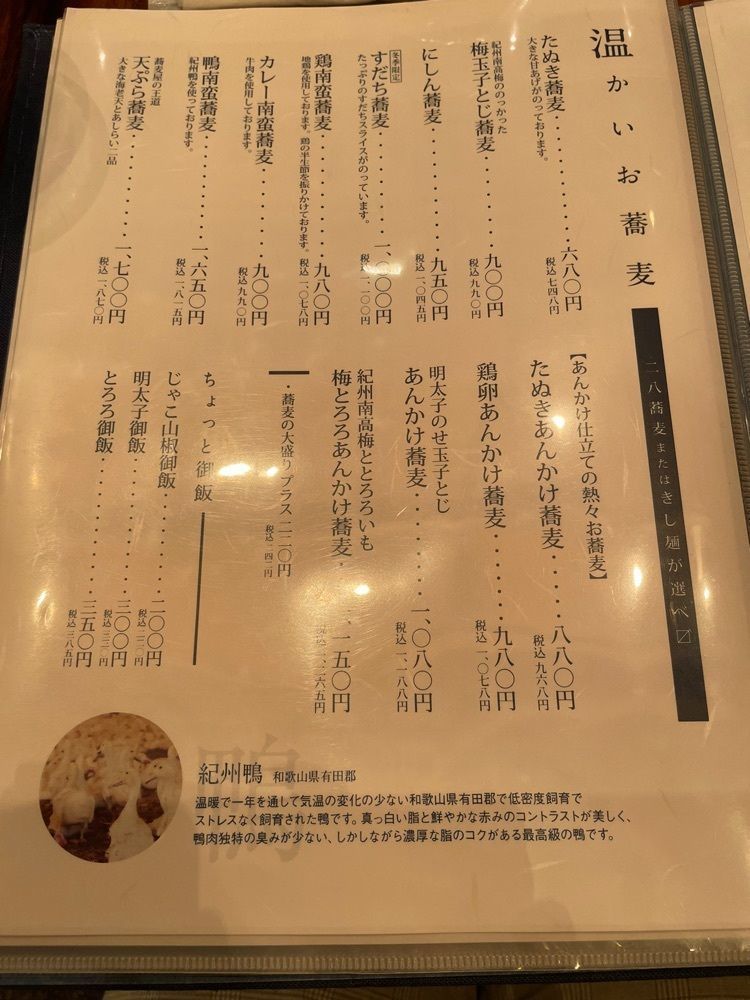 温かいお蕎麦
二八蕎麦またはきし麺が選べ〼
たぬき蕎麦・・・・・・・・・・六八〇円
大きな甘あげがのっております。
税込七四八円
紀州南高梅ののっかった
梅玉子とじ蕎麦・・・・・・・九〇〇円
税込九九〇円
にしん蕎麦・・・・・・・・・・九五〇円
税込一、〇四五円
冬季限定
すだち蕎麦・・・・・・・・・一、〇〇〇円
たっぷりのすだちスライスがのっています。
税込一、一〇〇円
鶏南蛮蕎麦・・・・・・・・・・九八〇円
地鶏を使用しております。鶏の半生節を振りかけております。
税込一、〇七八円
カレー南蛮蕎麦・・・・・・・・九〇〇円
牛肉を使用しております。
税込九九〇円
鴨南蛮蕎麦・・・・・・・・・一、六五〇円
紀州鴨を使っております。
税込一、八一五円
蕎麦屋の王道
天ぷら蕎麦・・・・・・・・・一、七〇〇円
大きな海老天とあしらい二品
税込一、八七〇円
【あんかけ仕立ての熱々お蕎麦】
たぬきあんかけ蕎麦・・・・・八八〇円
税込九六八円
鶏卵あんかけ蕎麦・・・・・・九八〇円
税込一、〇七八円
明太子のせ玉子とじ
あんかけ蕎麦・・・・・・・一、〇八〇円
税込一、一八八円
紀州南高梅ととろろいも
梅とろろあんかけ蕎麦・・一、一五〇円
税込一、二六五円
・蕎麦の大盛り プラス二二〇円
税込二四二円
ちょっと御飯
じゃこ山椒御飯・・・・・・・二〇〇円
税込二二〇円
明太子御飯・・・・・・・・・三〇〇円
税込三三〇円
とろろ御飯・・・・・・・・・三五〇円
税込三八五円
鴨
紀州鴨 和歌山県有田郡
温暖で一年を通して気温の変化の少ない和歌山県有田郡で低密度飼育で
ストレスなく飼育された鴨です。真っ白い脂と鮮やかな赤みのコントラストが美しく、
鴨肉独特の臭みが少ない、しかしながら濃厚な脂のコクがある最高級の鴨です。